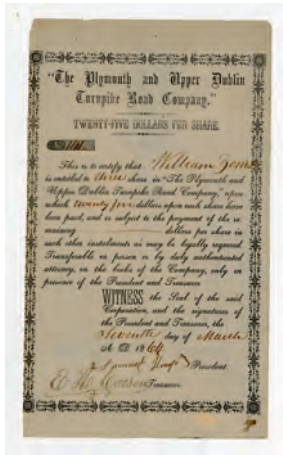 "The Plymouth and Upper Dublin
Turnpike Road Company."
TWENTY-FIVE DOLLARS PER SHARE.
This is to certify that William
is entitled to three share in "The Plymouth and
Upper Dublin Turnpike Road Company," upon
which twenty five dollars upon each share have
been paid, and is subject to the payment of the re-
maining dollars per share in
such other instalments as may be legally required
Transferable in person or by duly authenticated
attorney, on the books of the Company, only in
presence of the President and Treasurer
WITNESS the Seal of the said
Corporation, and the signatures of
the President and Treasurer, the
Seventh day of March
A D 18
Samuel President
Treasurer